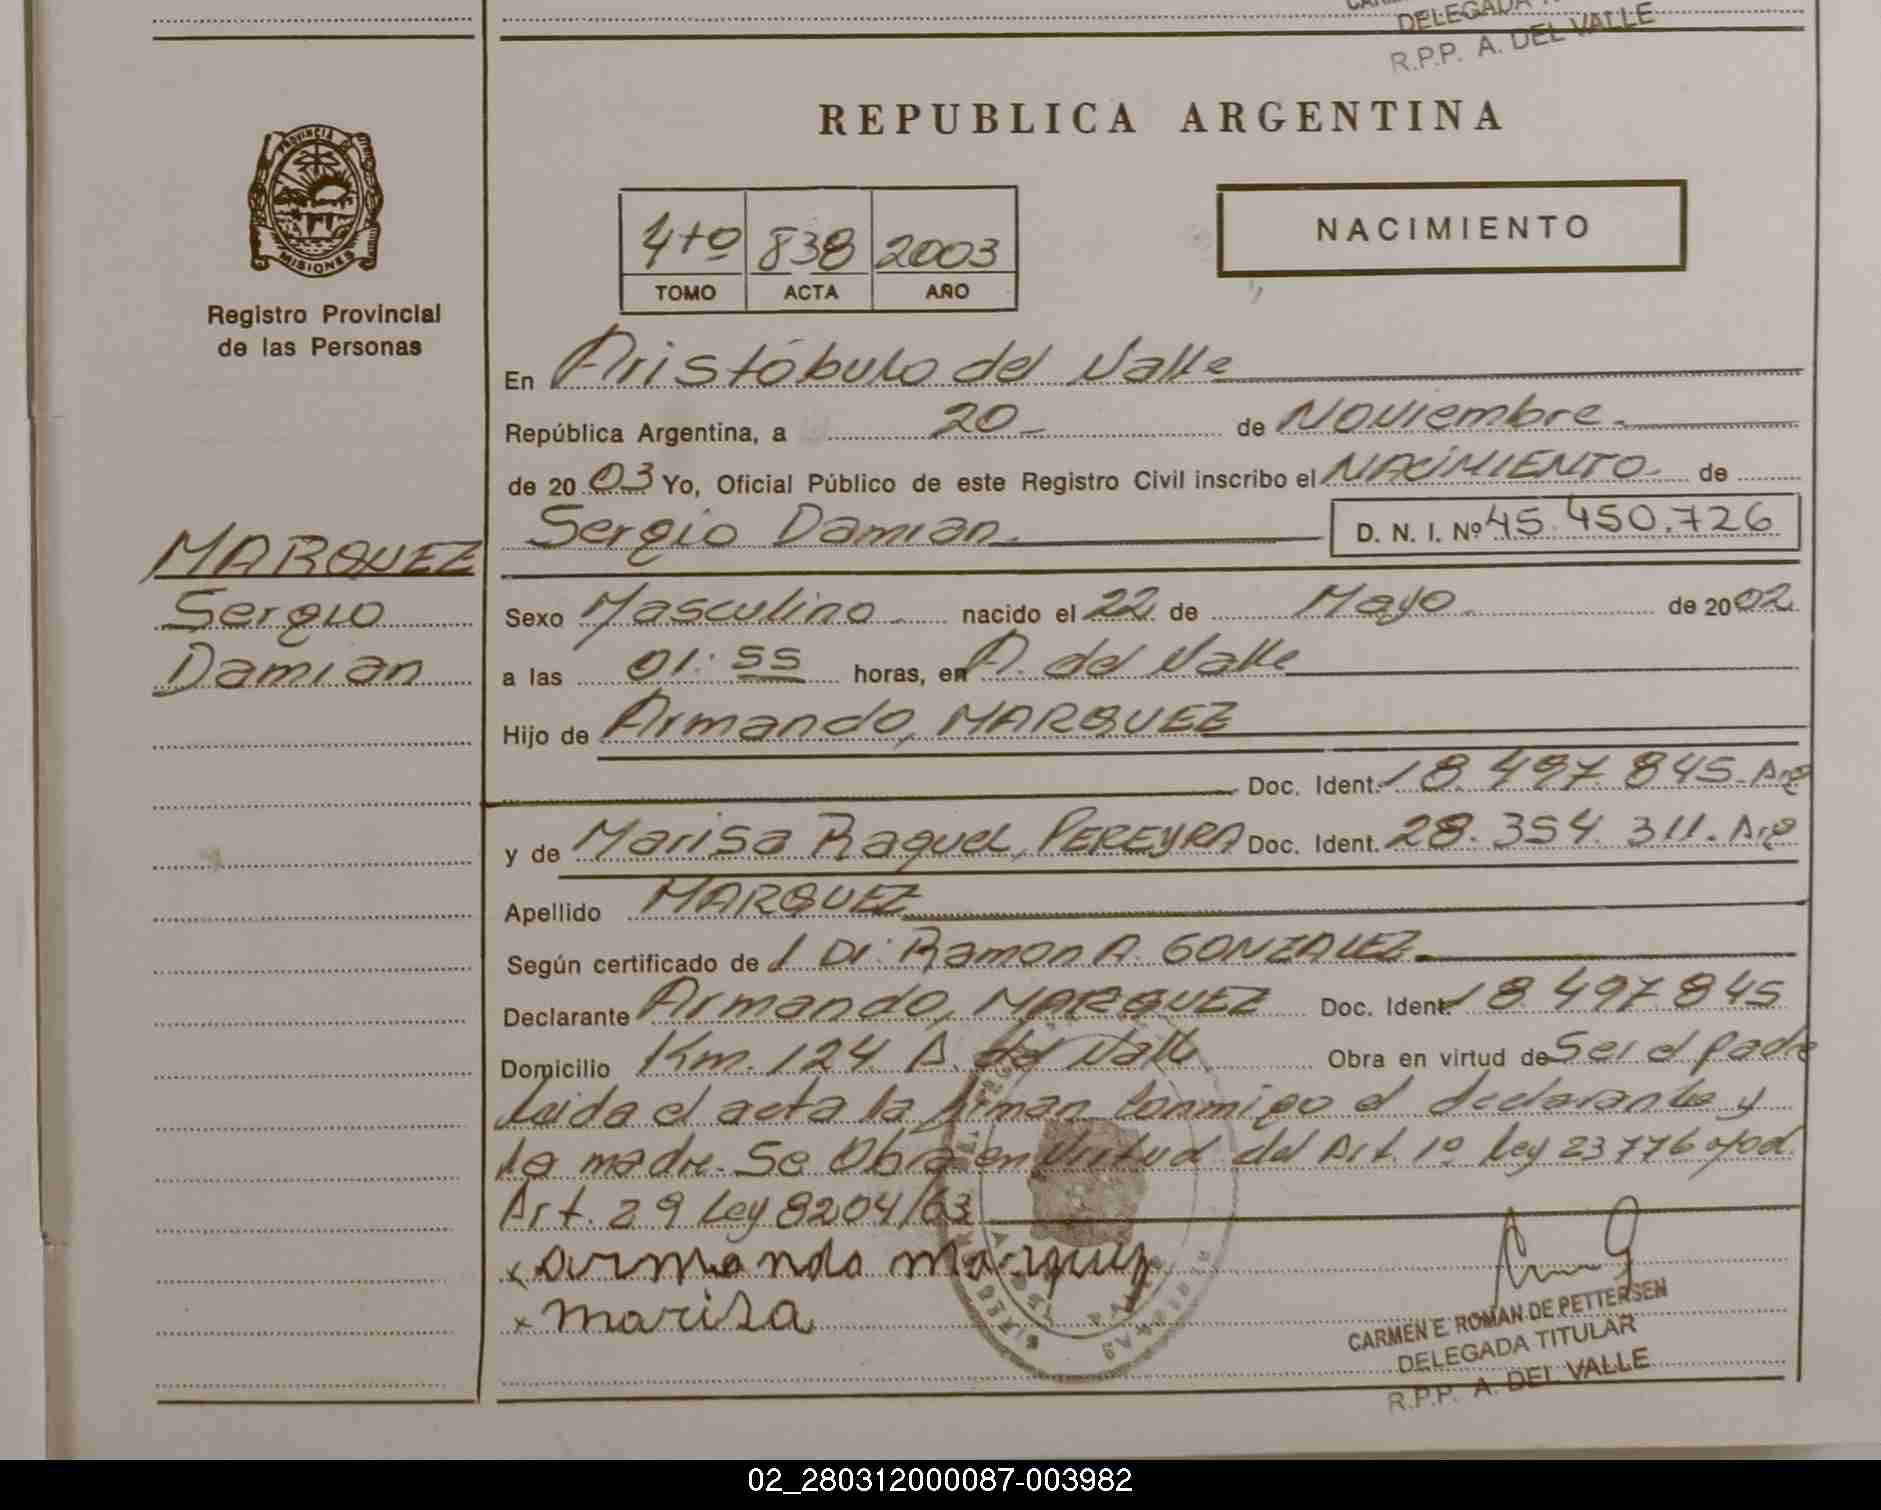 DELEGADA
R.P.P. A. DEL VALLE
PROVINCIA DE
MISIONES
Registro Provincial
de las Personas
MARQUEZ
Sergio
Damian
REPUBLICA ARGENTINA
4to 838 2003
TOMO ACTA AÑO
NACIMIENTO
En Aristóbulo del Valle
República Argentina, a 20 de Noviembre
de 2003 Yo, Oficial Público de este Registro Civil inscribo el NACIMIENTO de
Sergio Damian D. N. I. Nº 45.450.726
Sexo Masculino nacido el 22 de Mayo de 2002
a las 01:55 horas, en A. del Valle
Hijo de Armando, MARQUEZ
Doc. Ident. 18.497.845-Arg
y de Marisa Raquel, PEREYRA Doc. Ident. 28.354.311.Arg
Apellido MARQUEZ
Según certificado de / Dr. Ramon A. GONZALEZ
Declarante Armando, MARQUEZ Doc. Ident. 18.497.845
Domicilio Km. 124 A. del Valle Obra en virtud de Ser el padre
Leida el acta la firman conmigo el declarante y
la madre. Se Obra en Virtud del Art. 1º Ley 23776 mod.
Art. 29 Ley 8204/63
x armando marquez
x marisa
CARMEN E. ROMAN DE PETTERSEN
DELEGADA TITULAR
R.P.P. A. DEL VALLE
02_280312000087-003982